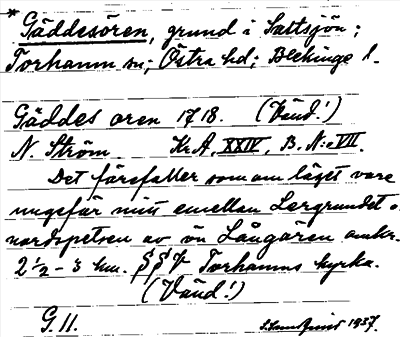 * Gäddesören, grund i Saltsjön;
Torhamn sn; Östra hd; Blekinge l.
Gäddes oren 1718. (Vänd!)
N. Ström. Kr.A, XXIV, B. N:o VII.
Det förefaller som om läget vore
ungefär mitt emellan Lergrundet o.
nordspetsen av ön Långören omkr.
2 ½ - 3 km. Torhamns kyrka.
(Vänd!)
G. 11.
S. Lundquist 1937.